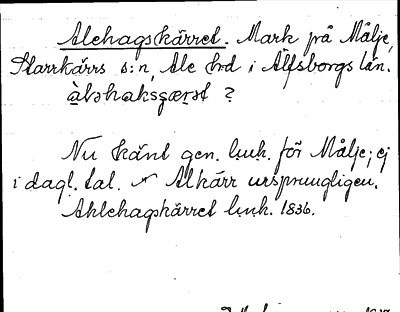 Alehagskärret. Mark på Målje,
Starrkärrs s:n, Ale hrd i Älfsborgs län.
àlshaksgærst ?
Nu känt gen. luuk. för Målje; ej
i dagl. tal. Alkärr ursprungligen.
Ahlehagskärret luuk. 1836.